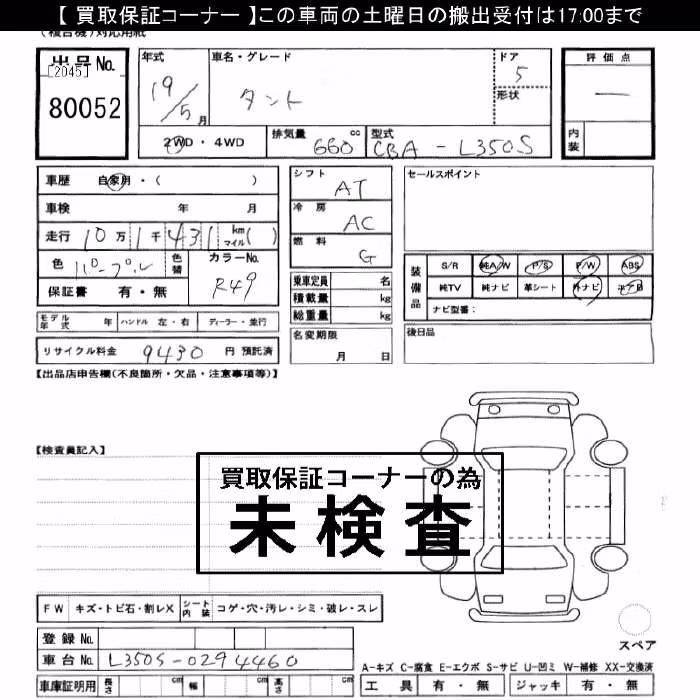 【 買取保証コーナー 】この車両の土曜日の搬出受付は17:00まで
(複合機)対応用紙
出品No.
[2045]
80052
年式
19/5月
車名・グレード
タント
ドア
5
形状
評価点
一
内装
2WD・4WD
排気量 660 cc
型式 CBA - L350S
車歴 自家用・( )
車検 年 月
走行 10万1千431 km マイル( )
色 パープル 色替
カラーNo. R49
保証書 有・無
シフト AT
冷房 AC
燃料 G
乗車定員 名
積載量 kg
総重量 kg
セールスポイント
装備品
S/R 純A/W P/S P/W ABS
純TV 純ナビ 革シート 外ナビ エアB
ナビ型番:
モデル年式 年 ハンドル 左・右 ディーラー・並行
名変期限
月 日
後日品
リサイクル料金 9430 円 預託済
【出品店申告欄(不良箇所・欠品・注意事項等)】
【検査員記入】
買取保証コーナーの為
未検査
FW キズ・トビ石・割レX シート内装 コゲ・穴・汚レ・シミ・破レ・スレ
スペア
登録No.
車台No. L350S-0294460
A-キズ C-腐食 E-エクボ S-サビ U-凹ミ W-補修 XX-交換済
車庫証明用 長さ cm 幅 cm 高さ cm
工具 有・無 ジャッキ 有・無